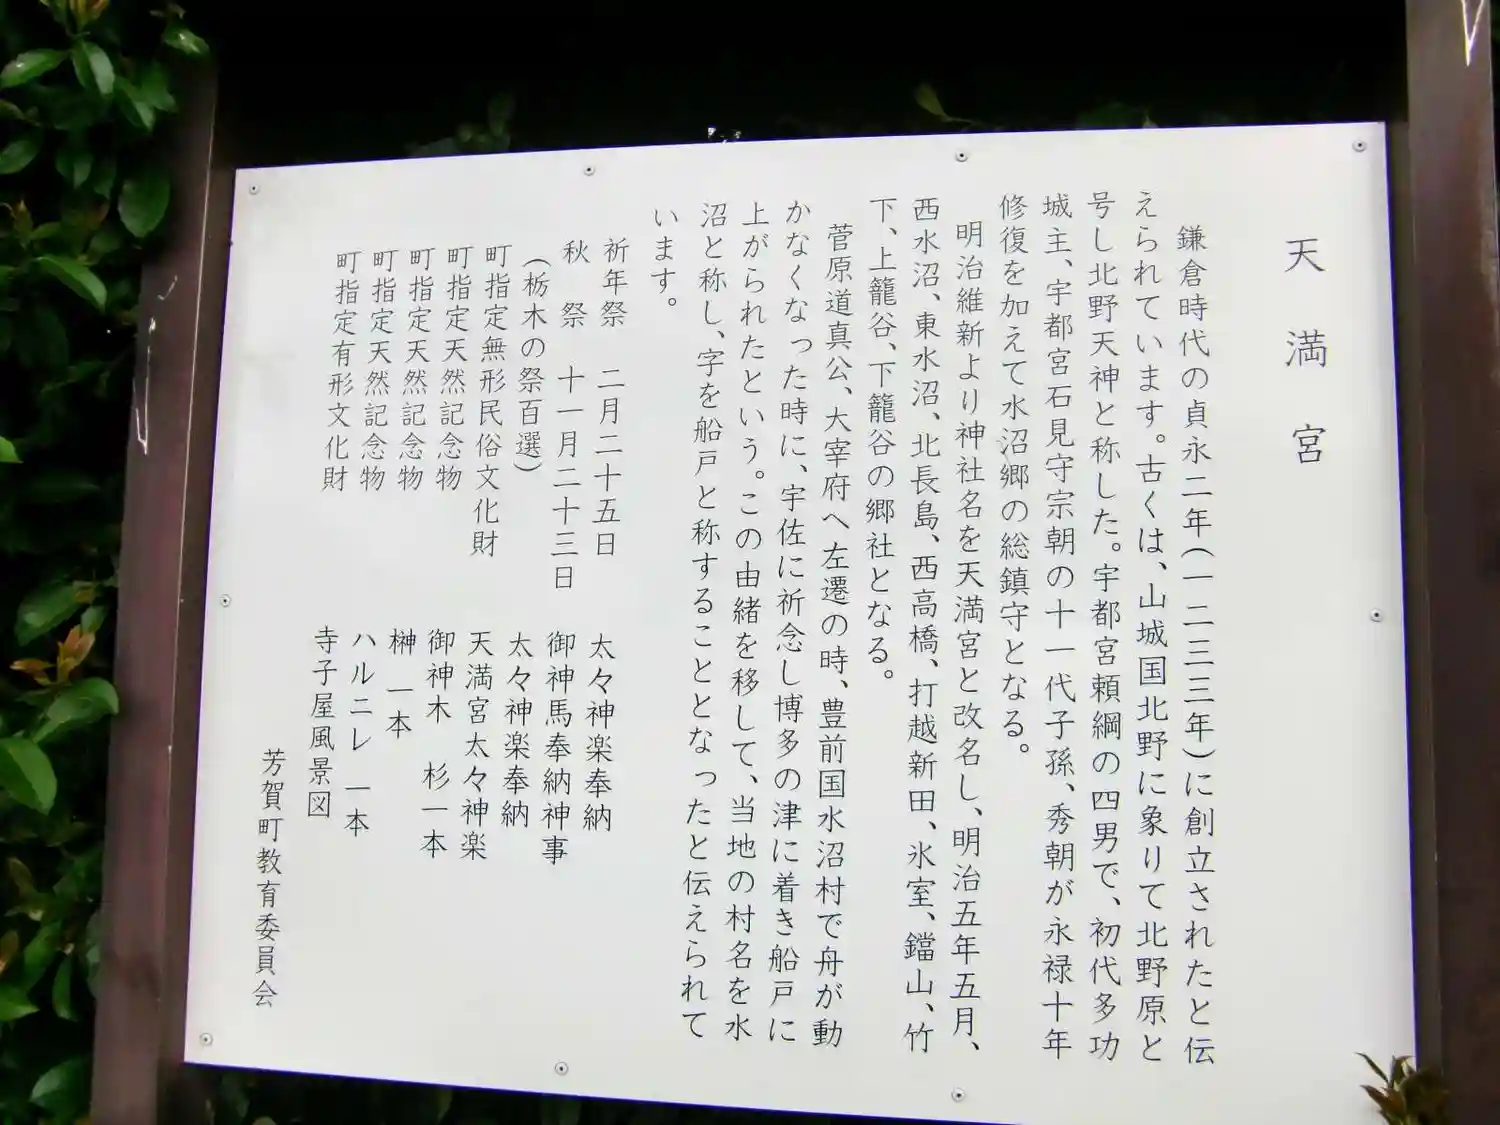 天満宮
鎌倉時代の貞永二年(一二三三年)に創立されたと伝
えられています。古くは、山城国北野に象りて北野原と
号し北野天神と称した。宇都宮頼綱の四男で、初代多功
城主、宇都宮石見守宗朝の十一代子孫、秀朝が永禄十年
修復を加えて水沼郷の総鎮守となる。
明治維新より神社名を天満宮と改名し、明治五年五月、
西水沼、東水沼、北長島、西高橋、打越新田、氷室、鐺山、竹
下、上籠谷、下籠谷の郷社となる。
菅原道真公、大宰府へ左遷の時、豊前国水沼村で舟が動
かなくなった時に、宇佐に祈念し博多の津に着き船戸に
上がられたという。この由緒を移して、当地の村名を水
沼と称し、字を船戸と称することとなったと伝えられて
います。
祈年祭 二月二十五日 太々神楽奉納
秋祭 十一月二十三日 御神馬奉納神事
(栃木の祭百選) 太々神楽奉納
町指定無形民俗文化財 天満宮太々神楽
町指定天然記念物 御神木 杉一本
町指定天然記念物 榊 一本
町指定天然記念物 ハルニレ 一本
町指定有形文化財 寺子屋風景図
芳賀町教育委員会